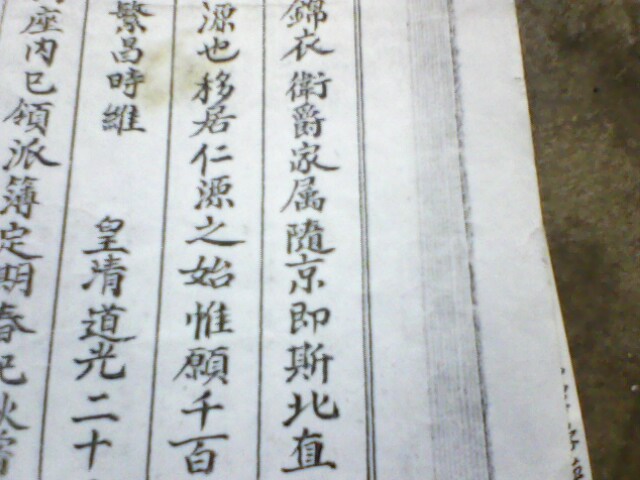 錦衣衛爵家属隨京即斯北直
源也移居仁源之始惟願千百
繁昌時維 皇清道光二十
座内巳領派簿定期春祀秋